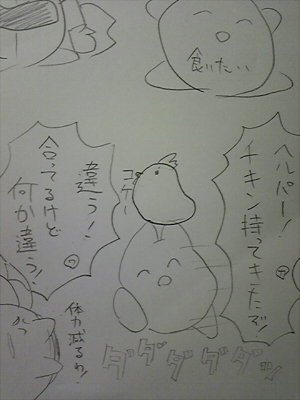 食いたい
ヘルパー！
チキン持ってきたぞ！
コケー
違う！
合ってるけど
何か違う！
体力減るわ！
ダダダダダッ